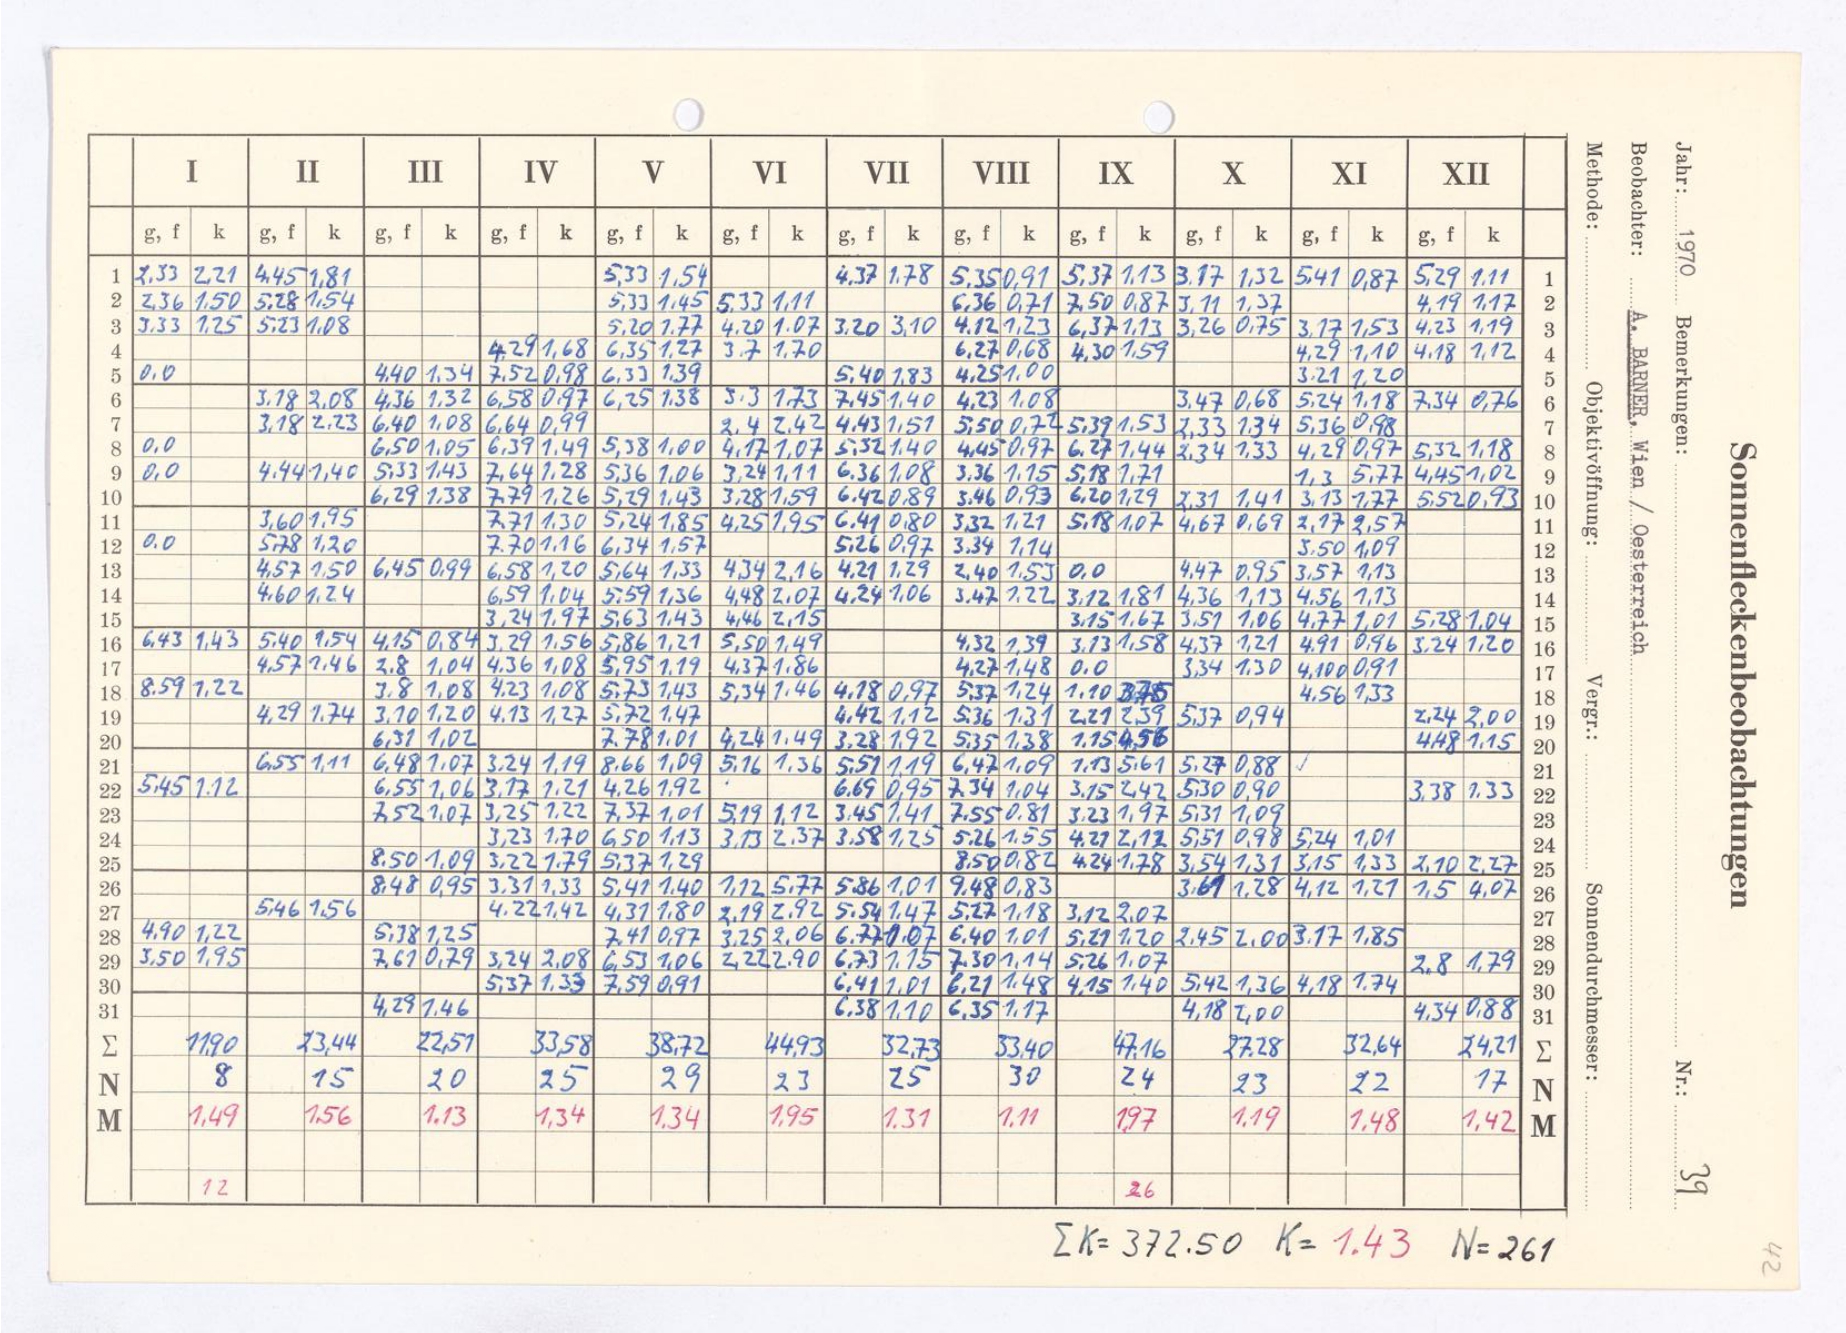 I II III IV V VI VII VIII IX X XI XII
g, f k g, f k g, f k g, f k g, f k g, f k g, f k g, f k g, f k g, f k g, f k g, f k
1 2,33 2,21 4,45 1,81 5,33 1,54 4,37 1,78 5,35 0,91 5,37 1,13 3,17 1,32 5,41 0,87 5,29 1,11 1
2 2,36 1,50 5,28 1,54 5,33 1,45 5,33 1,11 6,36 0,71 7,50 0,87 3,11 1,37 4,19 1,17 2
3 3,33 1,25 5,23 1,08 5,20 1,77 4,20 1,07 3,20 3,10 4,12 1,23 6,37 1,13 3,26 0,75 3,17 1,53 4,23 1,19 3
4 4,29 1,68 6,35 1,27 3,7 1,70 6,27 0,68 4,30 1,59 4,29 1,10 4,18 1,12 4
5 0,0 4,40 1,34 7,52 0,98 6,33 1,39 5,40 1,83 4,25 1,00 3,21 1,20 5
6 3,18 2,08 4,36 1,32 6,58 0,97 6,25 1,38 3,3 1,73 7,45 1,40 4,23 1,08 3,47 0,68 5,24 1,18 7,34 0,76 6
7 3,18 2,23 6,40 1,08 6,64 0,99 2,4 2,42 4,43 1,51 5,50 0,72 5,39 1,53 2,33 1,34 5,36 0,98 7
8 0,0 6,50 1,05 6,39 1,49 5,38 1,00 4,17 1,07 5,32 1,40 4,45 0,97 6,27 1,44 2,34 1,33 4,29 0,97 5,32 1,18 8
9 0,0 4,44 1,40 5,33 1,43 7,64 1,28 5,36 1,06 3,24 1,11 6,36 1,08 3,36 1,15 5,18 1,71 1,3 5,77 4,45 1,02 9
10 6,29 1,38 7,79 1,26 5,29 1,43 3,28 1,59 6,42 0,89 3,46 0,93 6,20 1,29 2,31 1,41 3,13 1,77 5,52 0,93 10
11 3,60 1,95 7,71 1,30 5,24 1,85 4,25 1,95 6,41 0,80 3,32 1,21 5,18 1,07 4,67 0,69 2,17 2,57 11
12 0,0 5,78 1,20 7,70 1,16 6,34 1,57 5,26 0,97 3,34 1,14 3,50 1,09 12
13 4,57 1,50 6,45 0,99 6,58 1,20 5,64 1,33 4,34 2,16 4,21 1,29 2,40 1,53 0,0 4,47 0,95 3,57 1,13 13
14 4,60 1,24 6,59 1,04 5,59 1,36 4,48 2,07 4,24 1,06 3,47 1,22 3,12 1,81 4,36 1,13 4,56 1,13 14
15 3,24 1,97 5,63 1,43 4,46 2,15 3,15 1,67 3,51 1,06 4,77 1,01 5,28 1,04 15
16 6,43 1,43 5,40 1,54 4,15 0,84 3,29 1,56 5,86 1,21 5,50 1,49 4,32 1,39 3,13 1,58 4,37 1,21 4,91 0,96 3,24 1,20 16
17 4,57 1,46 2,8 1,04 4,36 1,08 5,95 1,19 4,37 1,86 4,27 1,48 0,0 3,34 1,30 4,100 0,91 17
18 8,59 1,22 3,8 1,08 4,23 1,08 5,73 1,43 5,34 1,46 4,18 0,97 5,37 1,24 1,10 4,56 1,33 18
19 4,29 1,74 3,10 1,20 4,13 1,27 5,72 1,47 4,42 1,12 5,36 1,31 2,21 2,39 5,37 0,94 2,24 2,00 19
20 6,31 1,02 7,78 1,01 4,24 1,49 3,28 1,92 5,35 1,38 1,15 4,56 4,48 1,15 20
21 6,55 1,11 6,48 1,07 3,24 1,19 8,66 1,09 5,16 1,36 5,51 1,19 6,47 1,09 1,13 5,61 5,27 0,88 21
22 5,45 1,12 6,55 1,06 3,17 1,21 4,26 1,92 6,69 0,95 7,34 1,04 3,15 2,42 5,30 0,90 3,38 1,33 22
23 7,52 1,07 3,25 1,22 7,37 1,01 5,19 1,12 3,45 1,41 7,55 0,81 3,23 1,97 5,31 1,09 23
24 3,23 1,70 6,50 1,13 3,13 2,37 3,58 1,25 5,26 1,55 4,21 2,12 5,51 0,98 5,24 1,01 24
25 8,50 1,09 3,22 1,79 5,37 1,29 8,50 0,82 4,24 1,78 3,54 1,31 3,15 1,33 2,10 2,27 25
26 8,48 0,95 3,31 1,33 5,41 1,40 1,12 5,77 5,86 1,01 9,48 0,83 3,61 1,28 4,12 1,21 1,5 4,07 26
27 5,46 1,56 4,22 1,42 4,31 1,80 2,19 2,92 5,54 1,47 5,27 1,18 3,12 2,07 27
28 4,90 1,22 5,38 1,25 7,41 0,97 3,25 2,06 6,77 1,07 6,40 1,01 5,21 1,20 2,45 2,00 3,17 1,85 28
29 3,50 1,95 7,61 0,79 3,24 2,08 6,53 1,06 2,22 2,90 6,73 1,15 7,30 1,14 5,26 1,07 2,8 1,79 29
30 5,37 1,33 7,59 0,91 6,41 1,01 6,21 1,48 4,15 1,40 5,42 1,36 4,18 1,74 30
31 4,29 1,46 6,38 1,10 6,35 1,17 4,18 2,00 4,34 0,88 31
Σ 11,90 23,44 22,51 33,58 38,72 44,93 32,73 33,40 47,16 27,28 32,64 24,21 Σ
N 8 15 20 25 29 23 25 30 24 23 22 17 N
M 1,49 1,56 1.13 1,34 1.34 1,95 1.31 1.11 1,97 1.19 1,48 1,42 M
12 26
ΣK= 372.50 K= 1.43 N= 261
Sonnenfleckenbeobachtungen
Jahr: 1970 Bemerkungen: Nr.: 39
Beobachter: A. BARNER, Wien / Oesterreich
Methode: Objektivöffnung: Vergr.: Sonnendurchmesser:
42